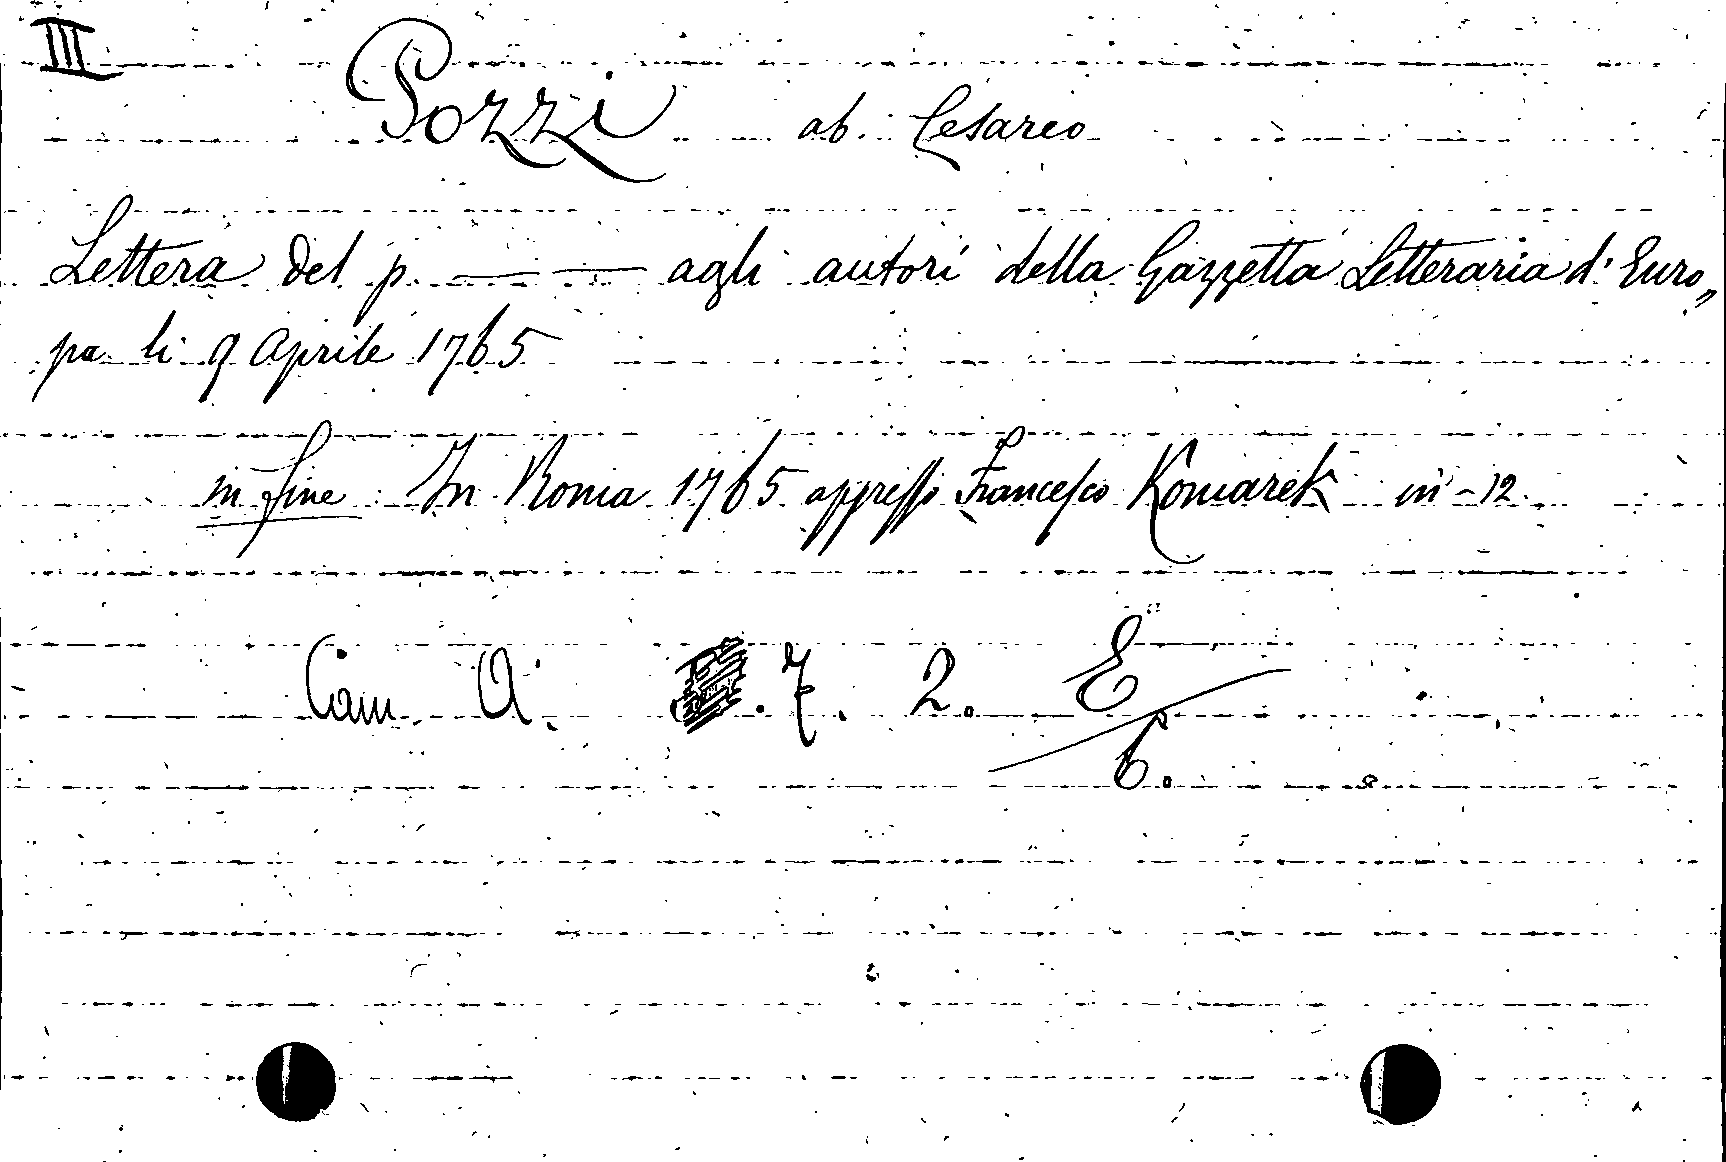 III
Pozzi ab. Cesareo
Lettera del p. — — agli autori della Gazzetta Letteraria d'Euro„
pa li 9 Aprile 1765
in fine In Roma 1765 appresso Francesco Komarek in-12.
Cam. A. . 7. 2. E/6.